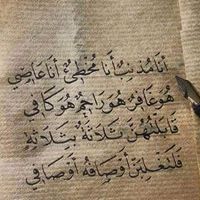 أَنَا مُذْنِبٌ أَنَا مُخْطِئٌ أَنَا عَاصِي
هُوَ غَافِرٌ هُوَ رَاحِمٌ هُوَ كَافِي
قَابَلْتُهُنَّ ثَلَاثَةً بِثَلَاثَةٍ
فَلَتَغْلِبَنَّ أَوْصَافُهُ أَوْصَافِي